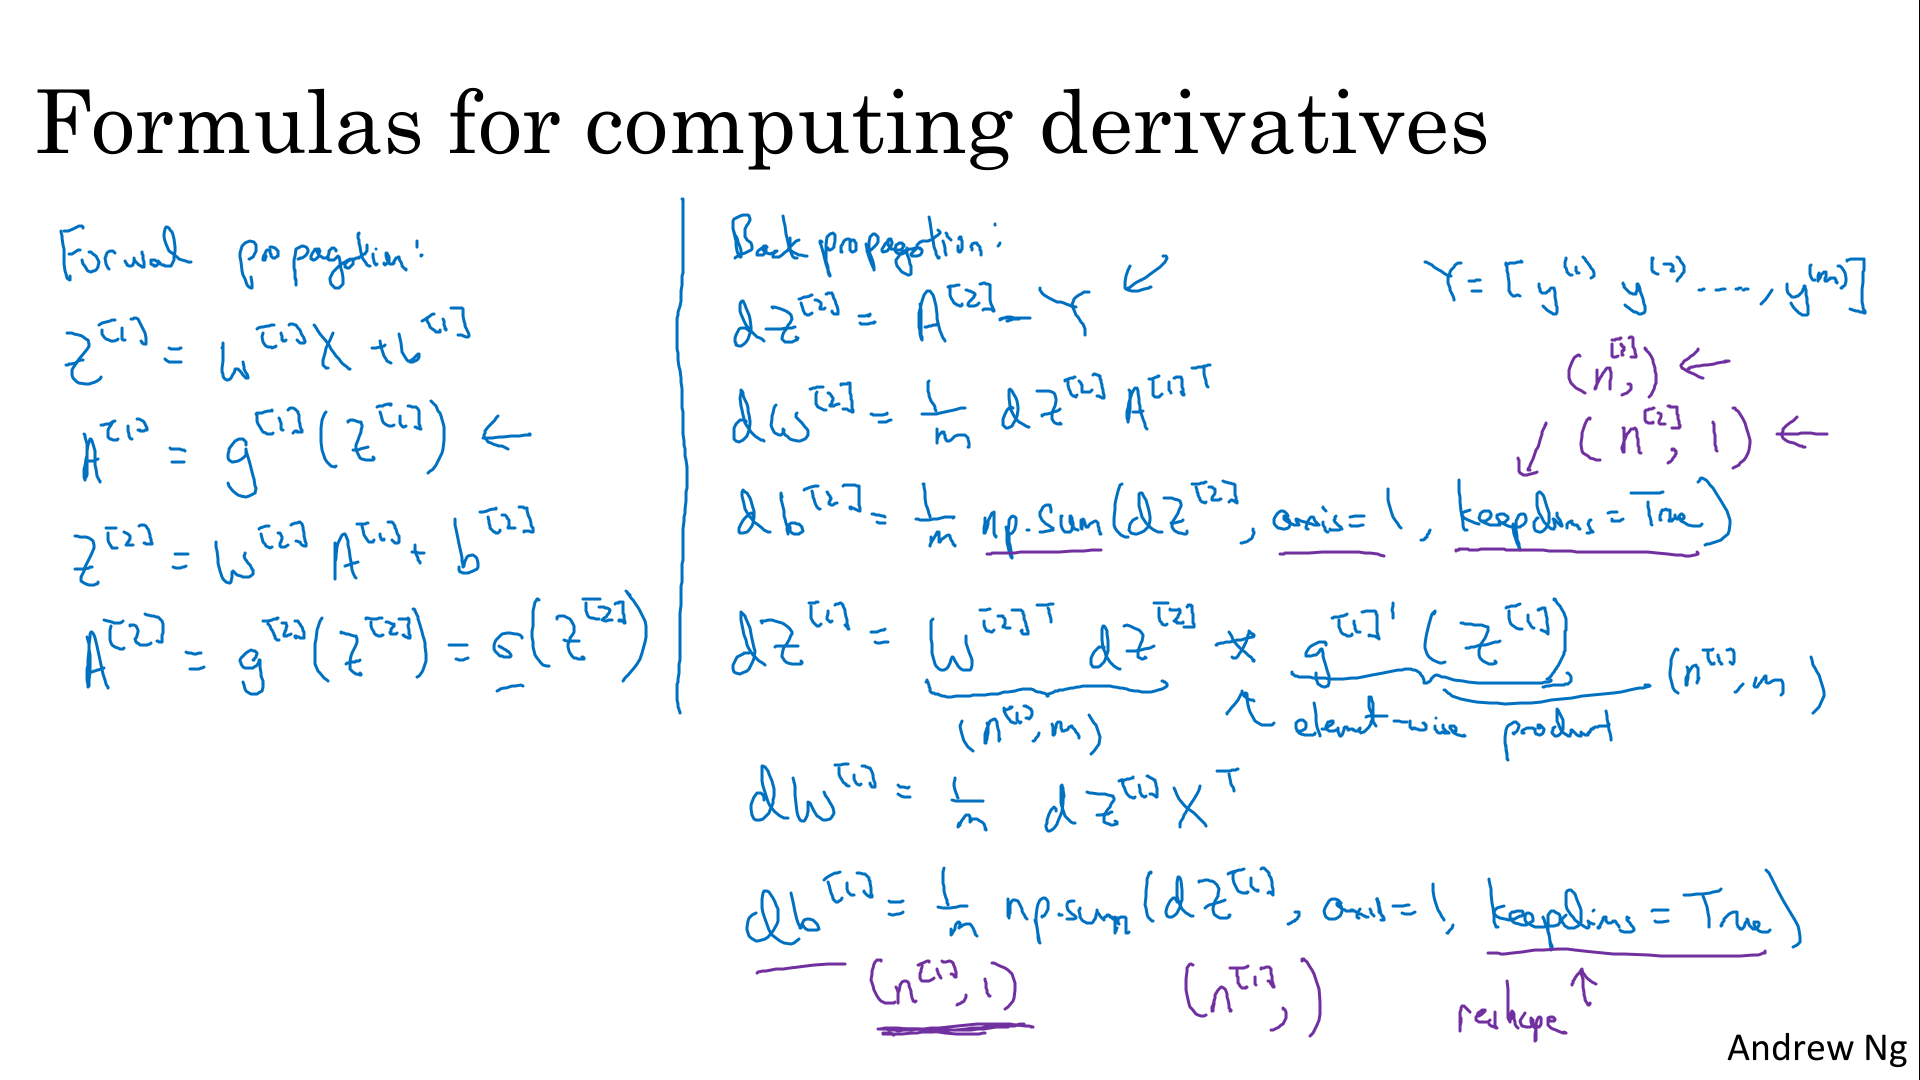 Formulas for computing derivatives
Forwal propagation:
Z^[1] = W^[1]X + b^[1]
A^[1] = g^[1](Z^[1]) ←
Z^[2] = W^[2] A^[1] + b^[2]
A^[2] = g^[2](Z^[2]) = σ(Z^[2])
Back propagation:
dZ^[2] = A^[2] - Y ↙
Y = [y^(1) y^(2) ...., y^(m)]
dW^[2] = 1/m dZ^[2] A^[1]T
(n^[2],) ←
(n^[2], 1) ←
db^[2] = 1/m np.sum(dZ^[2], axis=1, keepdims=True)
dZ^[1] = W^[2]T dZ^[2] * g^[1]'(Z^[1])
(n^[1], m)
element-wise product
(n^[1], m)
dW^[1] = 1/m dZ^[1] X^T
db^[1] = 1/m np.sum(dZ^[1], axis=1, keepdims=True)
(n^[1], 1)
(n^[1],)
reshape ↑
Andrew Ng